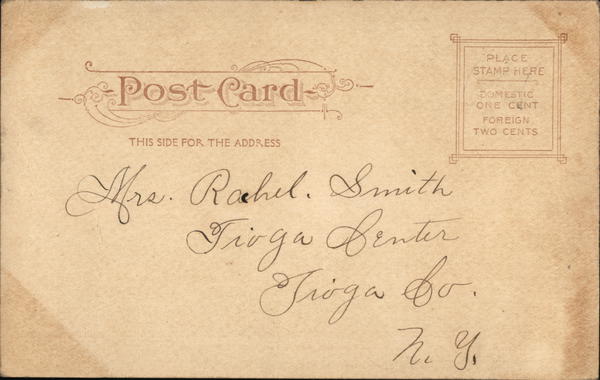 Post Card
THIS SIDE FOR THE ADDRESS
PLACE
STAMP HERE
DOMESTIC
ONE CENT
FOREIGN
TWO CENTS
Mrs. Rahel. Smith
Tioga Center
Tioga Co.
N. Y.